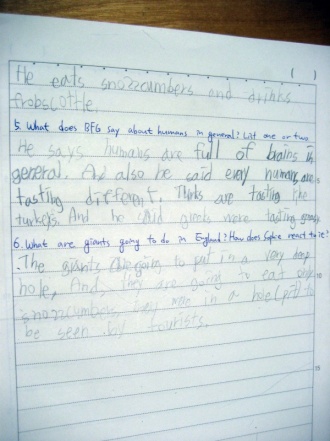 ( )
He eats snozzcumbers and drinks
frobscottle.
5. What does BFG say about humans in general? List one or two.
He says humans are full of brains in
general. And also he said every humans are
tasting different. Thinks are tasting the
turkeys. And he said greets were tasting greasy.
6. What are giants going to do in England? How does Sophie react to it?
The giants are going to put in a very deep
hole, And, they are going to eat only
snozzcumbers, they more in a hole(pit) to
be seen by tourists.
15